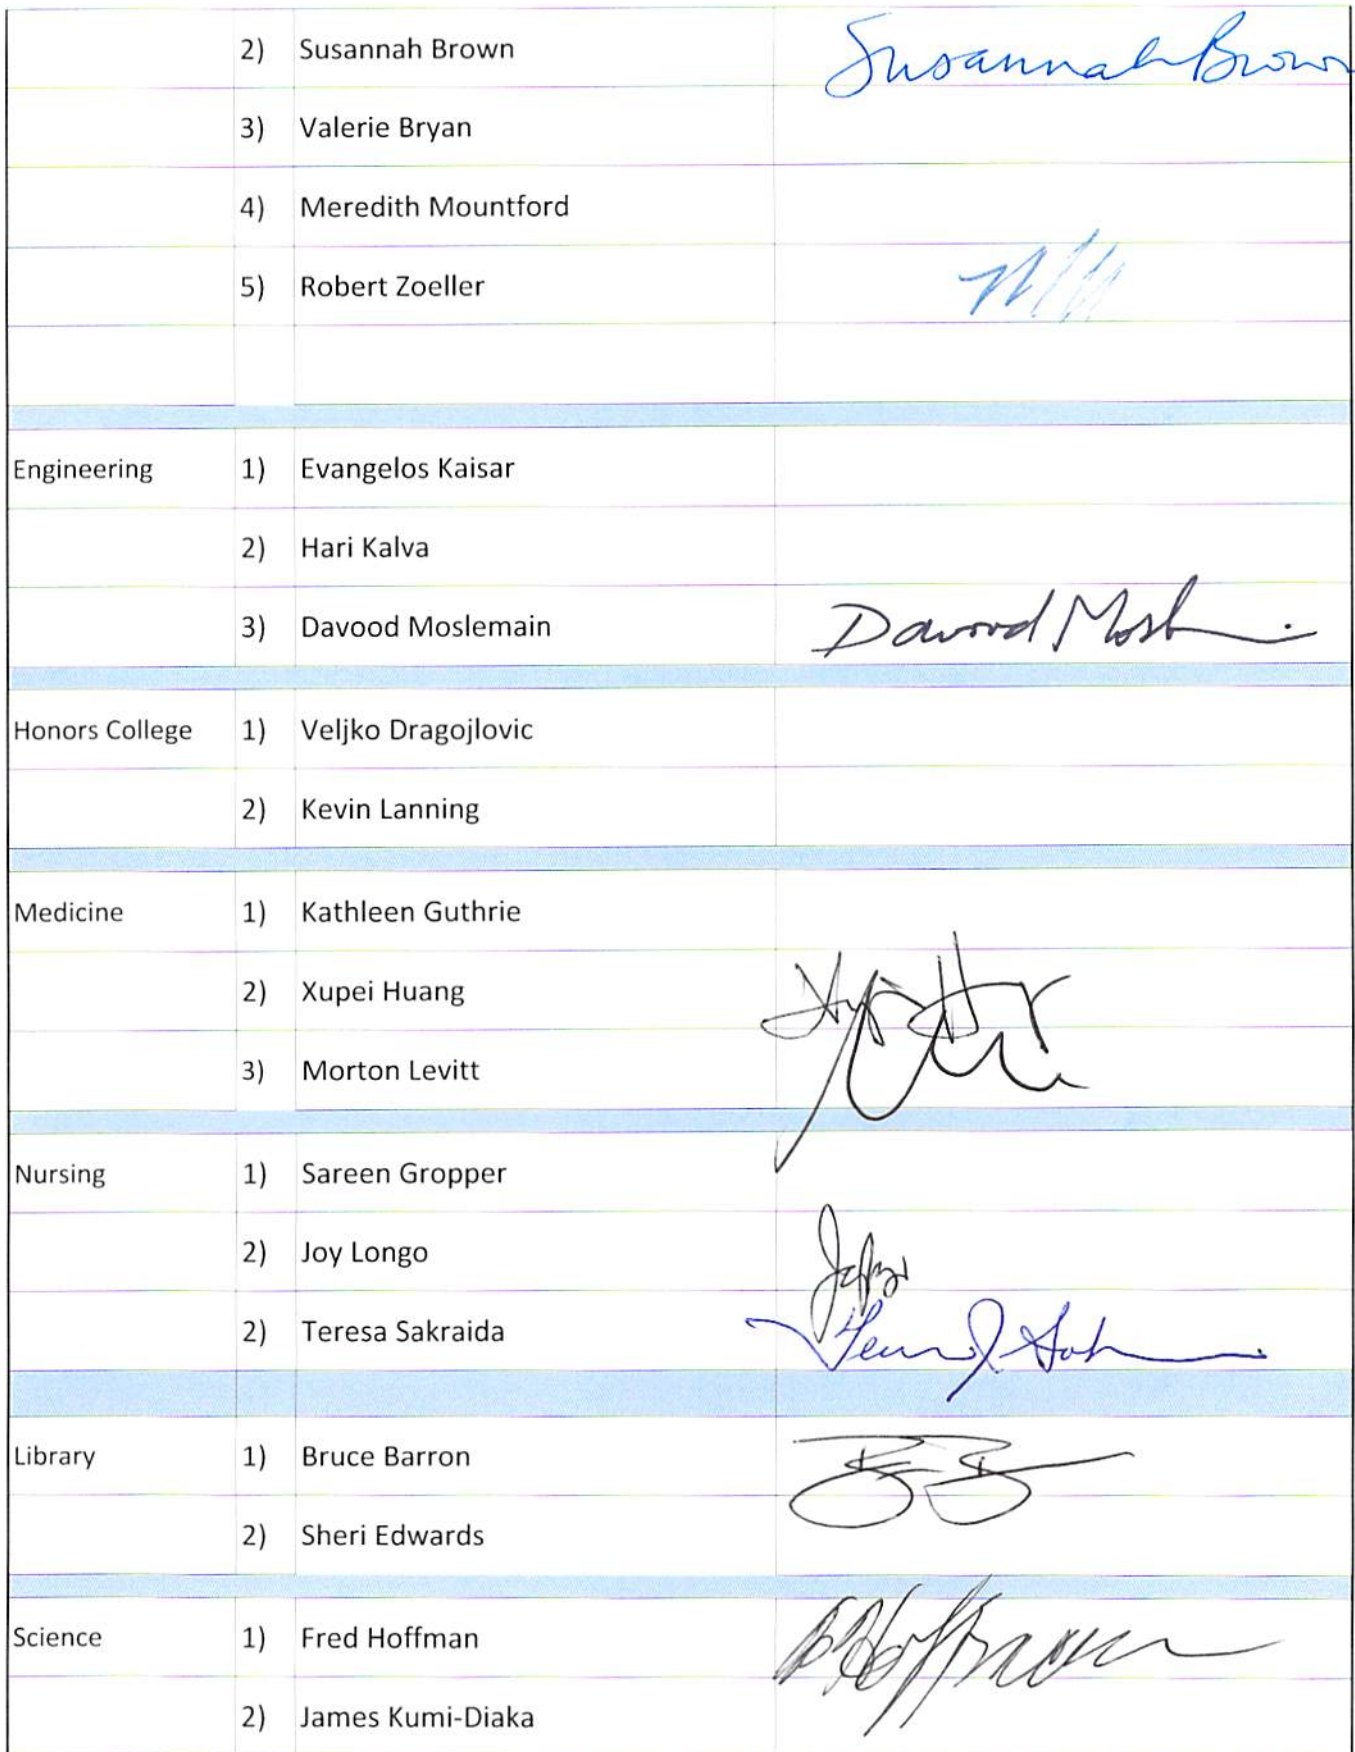 2) Susannah Brown Susannah Brown
3) Valerie Bryan
4) Meredith Mountford
5) Robert Zoeller
Engineering 1) Evangelos Kaisar
2) Hari Kalva
3) Davood Moslemain Davood
Honors College 1) Veljko Dragojlovic
2) Kevin Lanning
Medicine 1) Kathleen Guthrie
2) Xupei Huang
3) Morton Levitt
Nursing 1) Sareen Gropper
2) Joy Longo
2) Teresa Sakraida
Library 1) Bruce Barron
2) Sheri Edwards
Science 1) Fred Hoffman Hoffman
2) James Kumi-Diaka